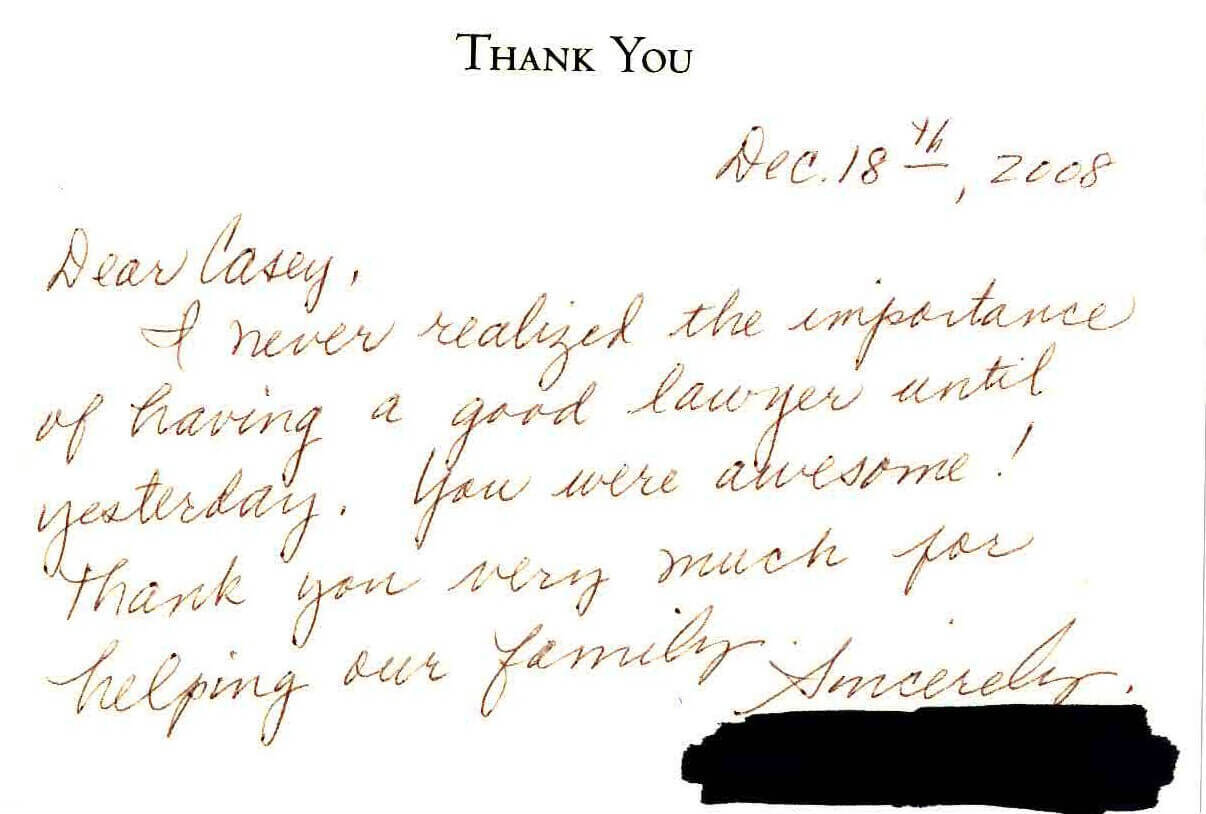 THANK YOU
Dec. 18th, 2008
Dear Casey,
I never realized the importance
of having a good lawyer until
yesterday. You were awesome!
Thank you very much for
helping our family.
Sincerely,